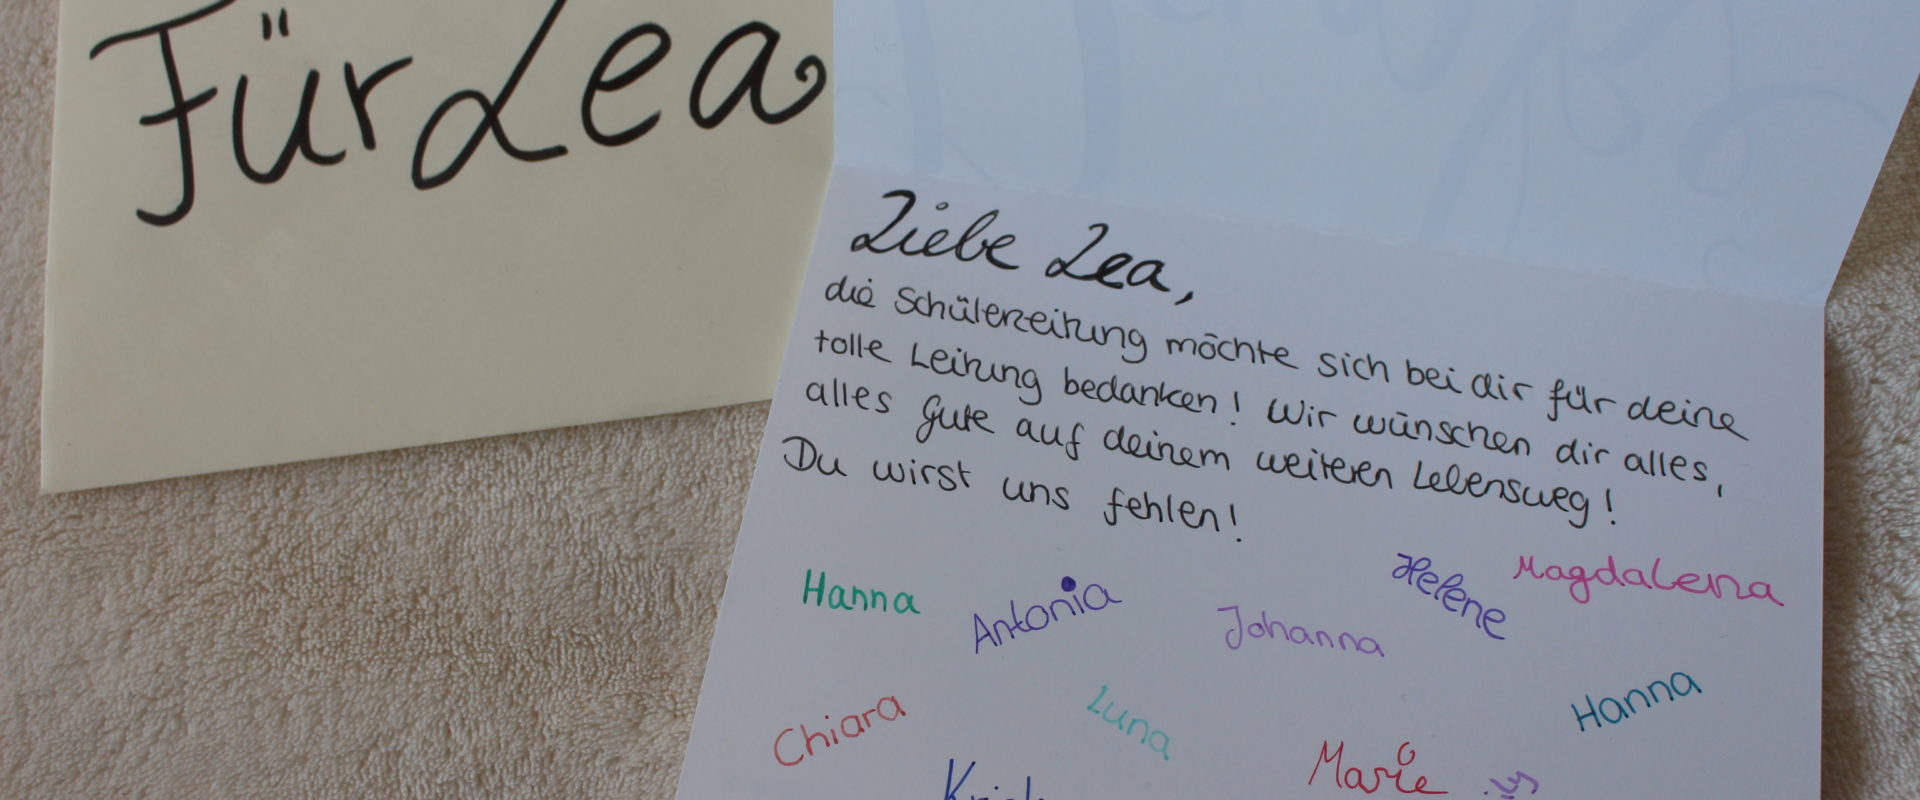 Für Lea
Liebe Lea,
die Schülerzeitung möchte sich bei dir für deine
tolle Leitung bedanken! Wir wünschen dir alles,
alles Gute auf deinem weiteren Lebensweg!
Du wirst uns fehlen!
Hanna Antonia Johanna Helene Magdalena
Chiara Luna Marie Hanna